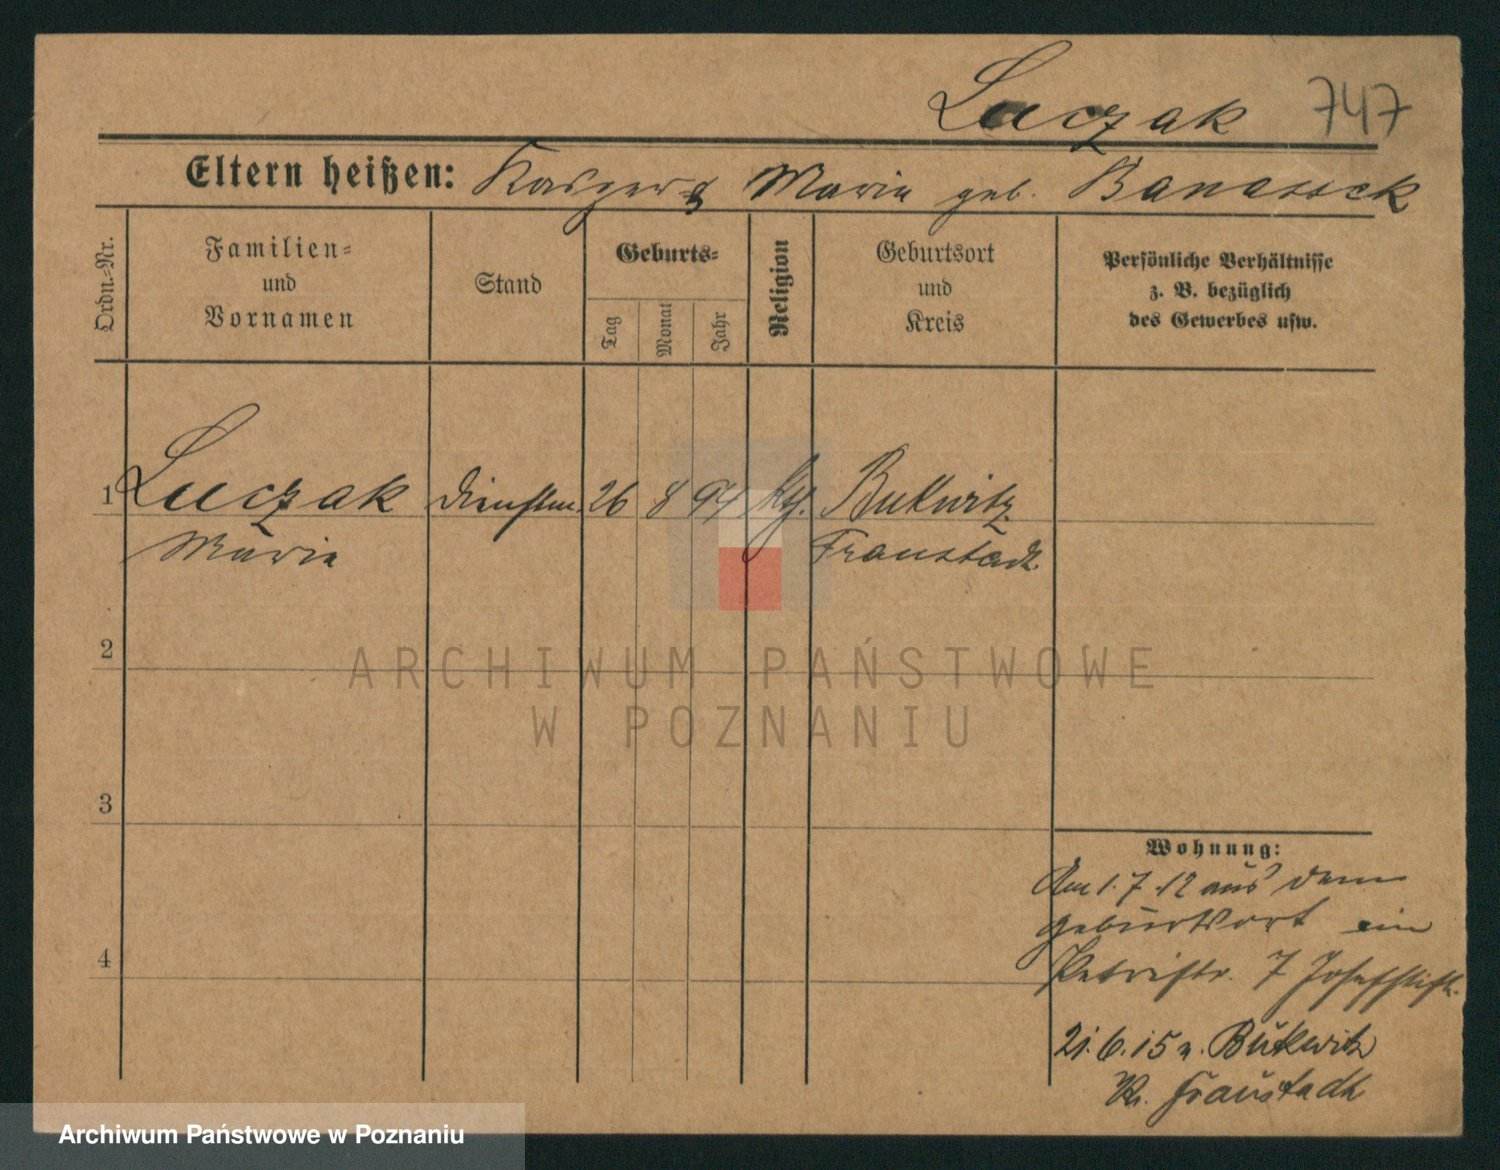 Luczak 747
Eltern heißen: Kasper & Marie geb. Banaszek
Ordn.=Nr.
Familien=
und
Vornamen
Stand
Geburts=
Tag
Monat
Jahr
Religion
Geburtsort
und
Kreis
Persönliche Verhältnisse
z. B. bezüglich
des Gewerbes usw.
1 Luczak Dienstm. 26 8 94 kth. Bukwitz
Marie Fraustadt.
2
3
4
Wohnung:
Am 1.7.12 aus dem
Geburtsort ein
Petristr. 7 Josefstift.
21.6.15 n. Bukwitz
Kr. Fraustadt
ARCHIWUM PAŃSTWOWE
W POZNANIU
Archiwum Państwowe w Poznaniu